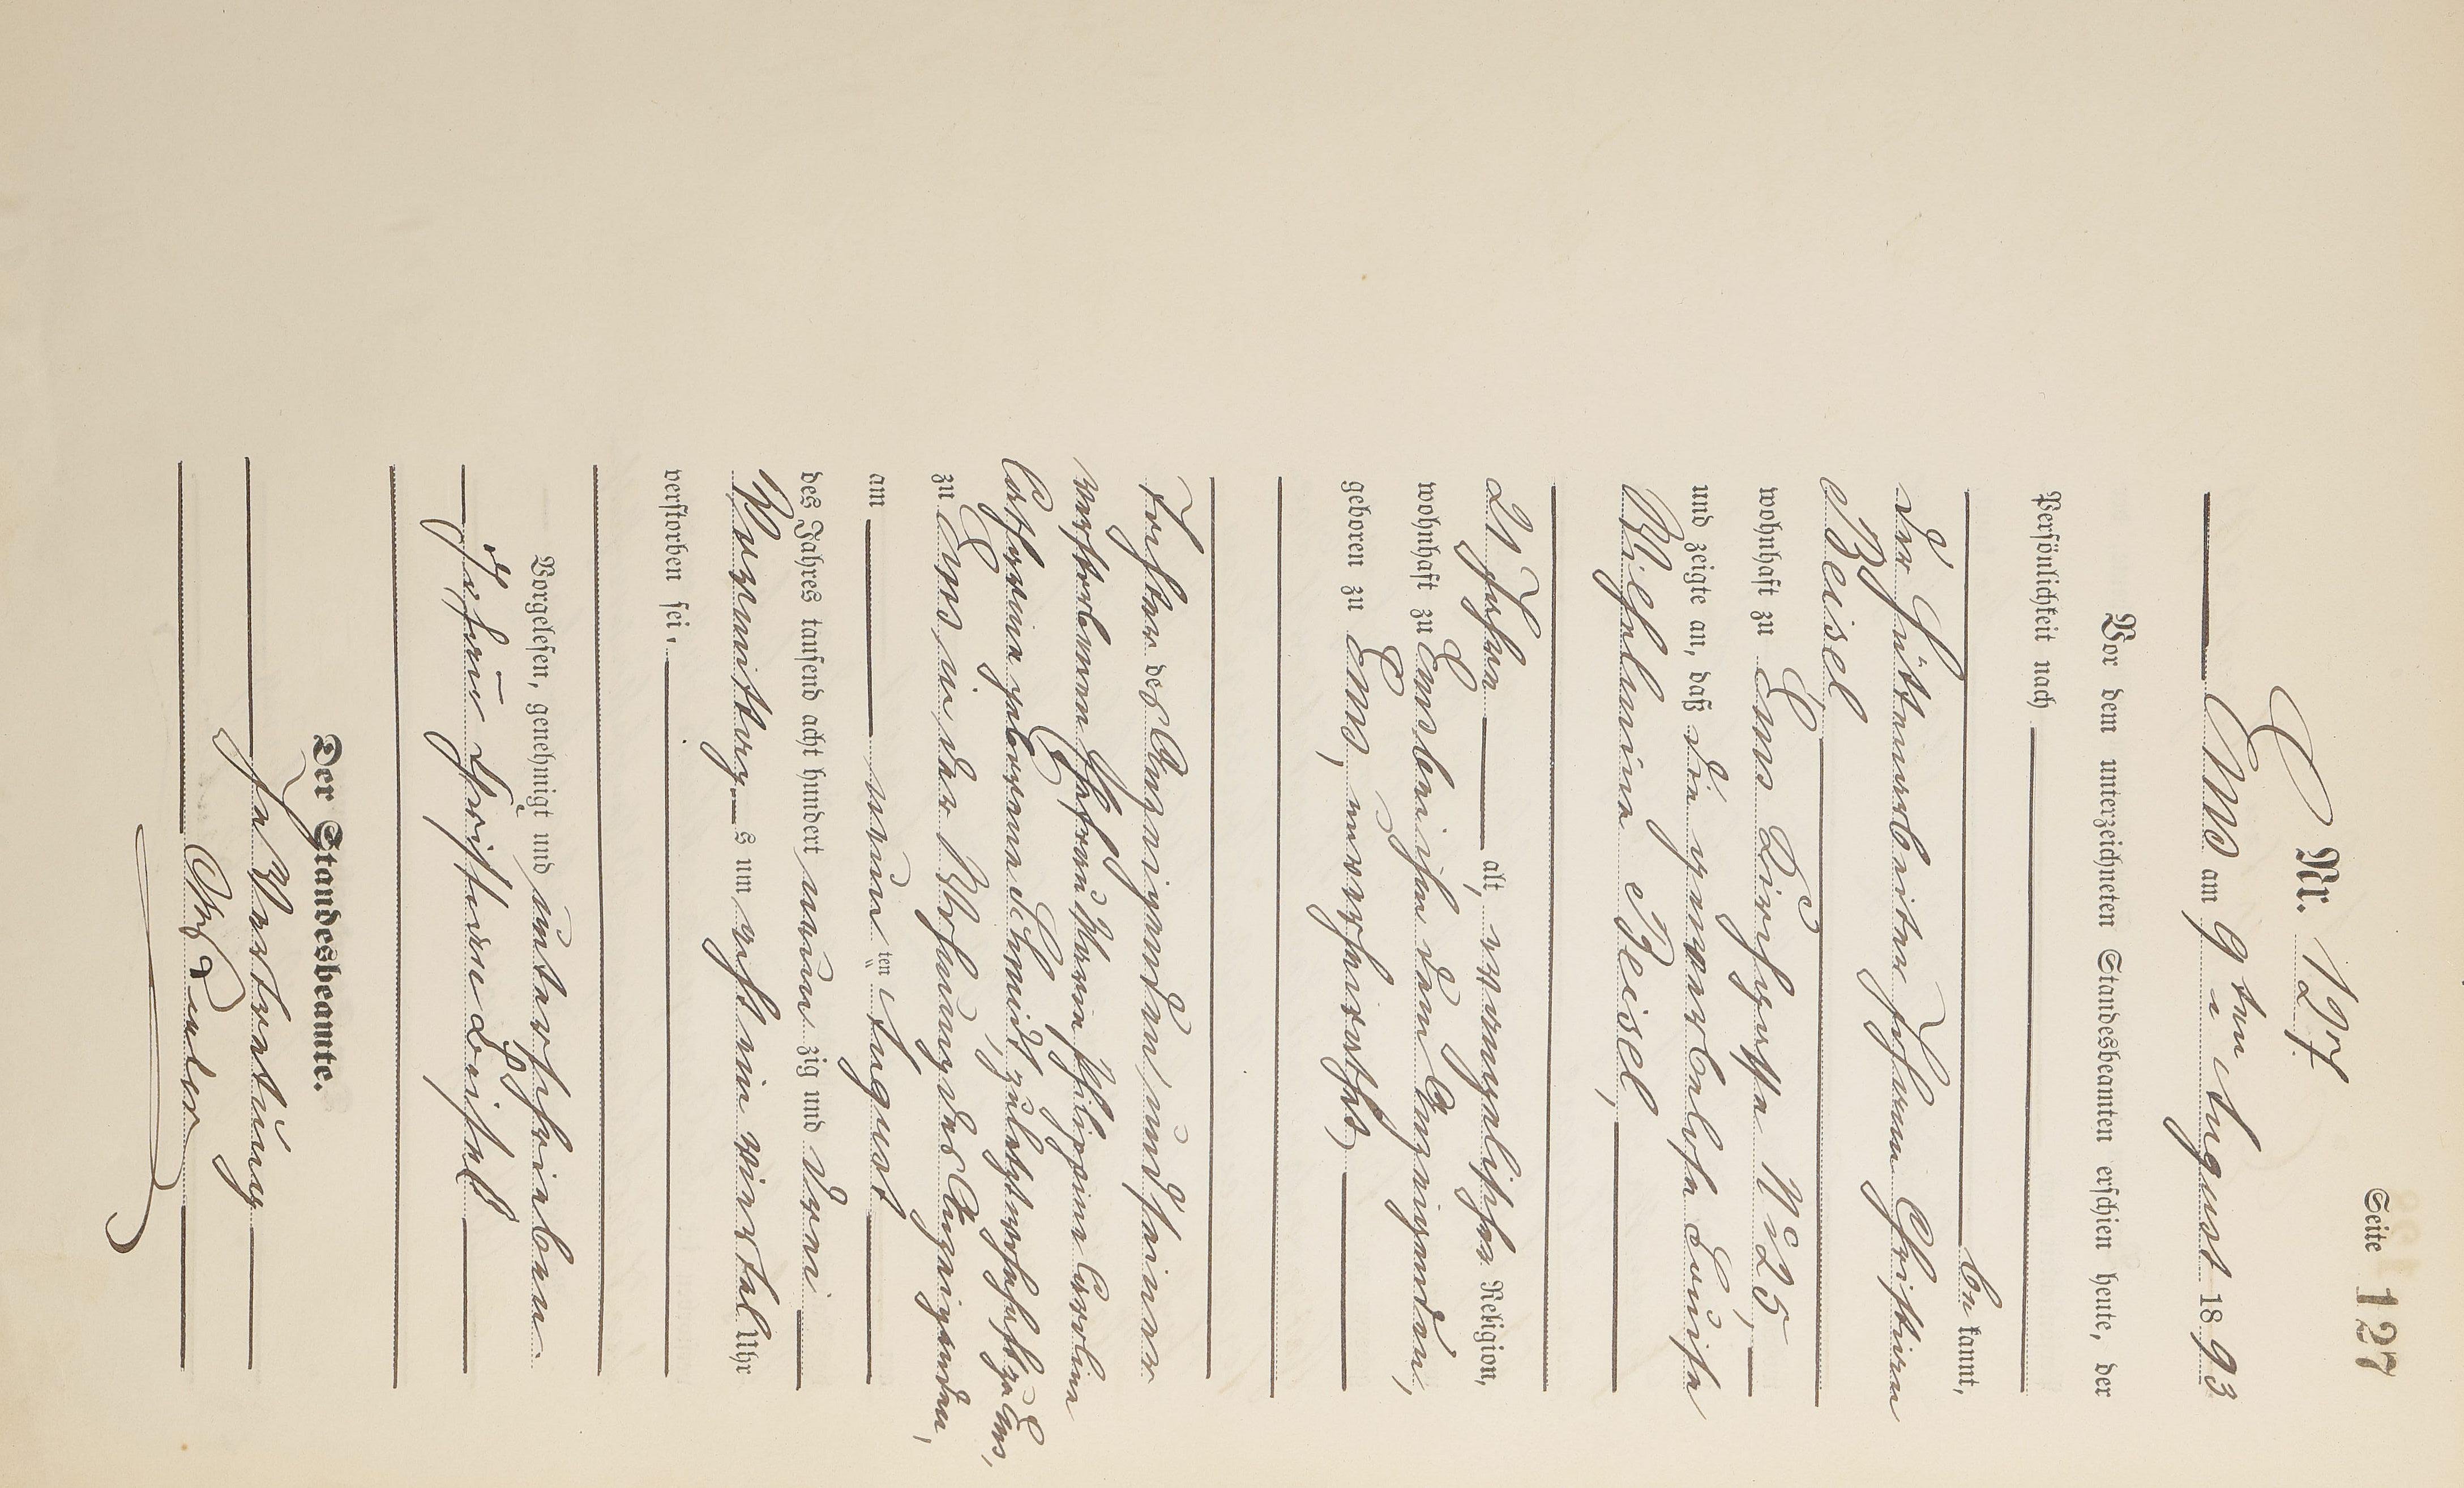 Seite 127
Nr. 127.
Ems am 9ten August 1893
Vor dem unterzeichneten Standesbeamten erschien heute, der
Persönlichkeit nach
be kannt,
der Hüttenarbeiter Johann Christian
Beisel
wohnhaft zu Ems Kirchgasse No 25,
und zeigte an, daß die gewerbelose Louise
Wilhelmine Beisel,
21 Jahre alt, evangelischer Religion,
wohnhaft zu Ems bei ihm dem Anzeigenden,
geboren zu Ems, unverheirathet,
Tochter des Anzeigenden und seiner
verstorbenen Ehefrau Maria Philippine Caroline
Catharina geborene Schmidt, zuletzt wohnhaft zu Ems,
zu Ems in der Wohnung des Anzeigenden,
am neun ten August
des Jahres tausend acht hundert neun zig und drei
Vormittags um acht ein viertel Uhr
verstorben sei.
Vorgelesen, genehmigt und unterschrieben
Johann Christian Beisel
Der Standesbeamte.
In Vertretung